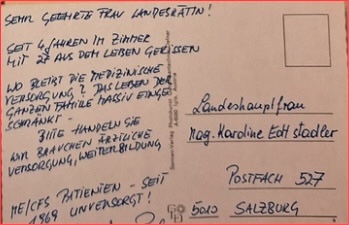 SEHR GEEHRTE FRAU LANDESRÄTIN!
SEIT 4 JAHREN IM ZIMMER
MIT 27 AUS DEM LEBEN GERISSEN
WO BLEIBT DIE MEDIZINISCHE
VERSORGUNG? DAS LEBEN DER
GANZEN FAMILIE MASSIV EINGE
SCHRÄNKT -
BITTE HANDELN SIE
WIR BRAUCHEN ÄRZTLICHE
VERSORGUNG, WEITERBILDUNG
ME/CFS PATIENTEN - SEIT
1969 UNVERSORGT!
Landeshauptfrau
Mag. Karoline Edtstadler
POSTFACH 527
5010 SALZBURG